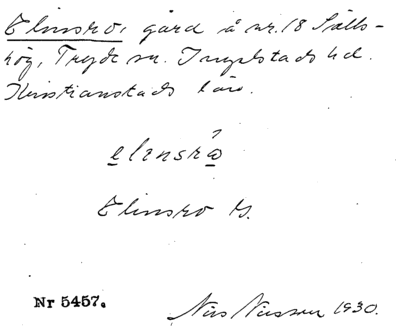 Elinsro, gård å nr. 18 Sälls-
hög, Tryde sn. Ingelstads hd.
Kristianstads län.
elinsrω
Elinsro G.
Nr 5457.
Nils Nilsson 1930.